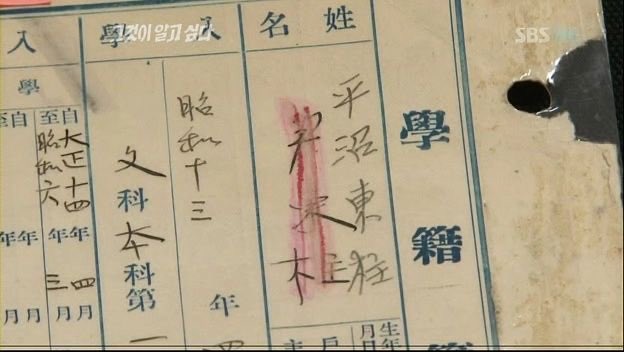 그것이 알고 싶다
SBS
學籍
姓名
平沼東柱
尹東柱
入學
昭和十三年
文科本科第一
入學
自大正十四年四月
至昭和六年三月
自年月
至年月